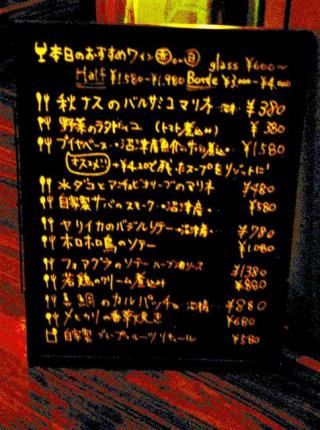 本日のおすすめワイン 赤or白 glass ¥600〜
Half ¥1,580〜¥1,980 Bottle ¥3,000〜¥4,000
秋ナスのバルサミコマリネ ¥380
野菜のラタトゥユ（トマト煮込み） ¥380
ブイヤベース・・沼津産魚介 煮込 ¥1,580
オススメ!! +¥420で残ったスープをリゾットに!
水ダコとアンチョビオリーブのマリネ ¥480
自家製サバのスモーク・・沼津産・ ¥580
ヤリイカのバジルソテー・・沼津産・ ¥780
ホロホロ鳥のソテー ¥1,080
フォアグラのソテー ソース ¥1,380
若鶏のクリーム煮込み ¥880
真鯛のカルパッチョ ¥880
メヒカリの香草焼き ¥680
自家製グレープフルーツリキュール ¥580